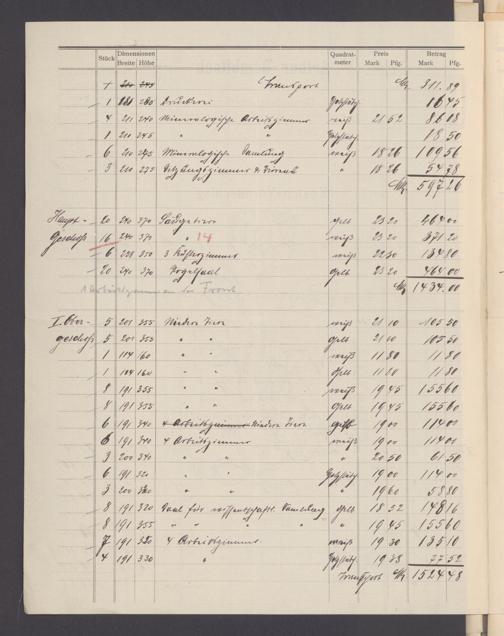 Stück Dimensionen Breite Höhe Quadratmeter Preis Mark Pfg. Betrag Mark Pfg.
Transport M. 311.89
1 260 Druckerei 16 45
4 211 240 Mineralogische Arbeitszimmer weiß 21 52 86 08
1 200 245 " " 18 50
6 200 245 Mineralogische Sammlung weiß 18 26 109 56
3 200 275 Sitzungszimmer & " 18 26 54 78
M. 597 26
Haupt- 20 240 370 Säugetiere gelb 23 20 464 00
Geschoß 16 240 370 " 14 weiß 23 20 371 20
6 228 350 3 Küsterzimmer weiß 22 30 134 10
20 240 370 Vogelsaal gelb 23 20 464.00
M. 1434.00
I. Ober- 5 201 355 Niedere Tiere weiß 21 10 105 50
geschoß 5 201 355 " " gelb 21 10 105 50
1 114 160 " " weiß 11 80 11 80
1 114 160 " " gelb 11 80 11 80
8 191 355 " " weiß 19 45 155 60
8 191 355 " " gelb 19 45 155 60
6 191 340 Niedere Tiere 19 00 114 00
6 191 340 4 Arbeitszimmer weiß 19 00 114 00
3 200 340 " " " 20 50 61 50
6 191 320 " " 19 00 114 00
3 200 320 " " " 19 60 58 80
8 191 320 Saal für wissenschaftl. Sammlung gelb 18 52 148 16
8 191 355 " " " " 19 45 155 60
7 191 320 4 Arbeitszimmer weiß 19 30 135 10
4 191 330 " 77 52
Transport M. 1524 48